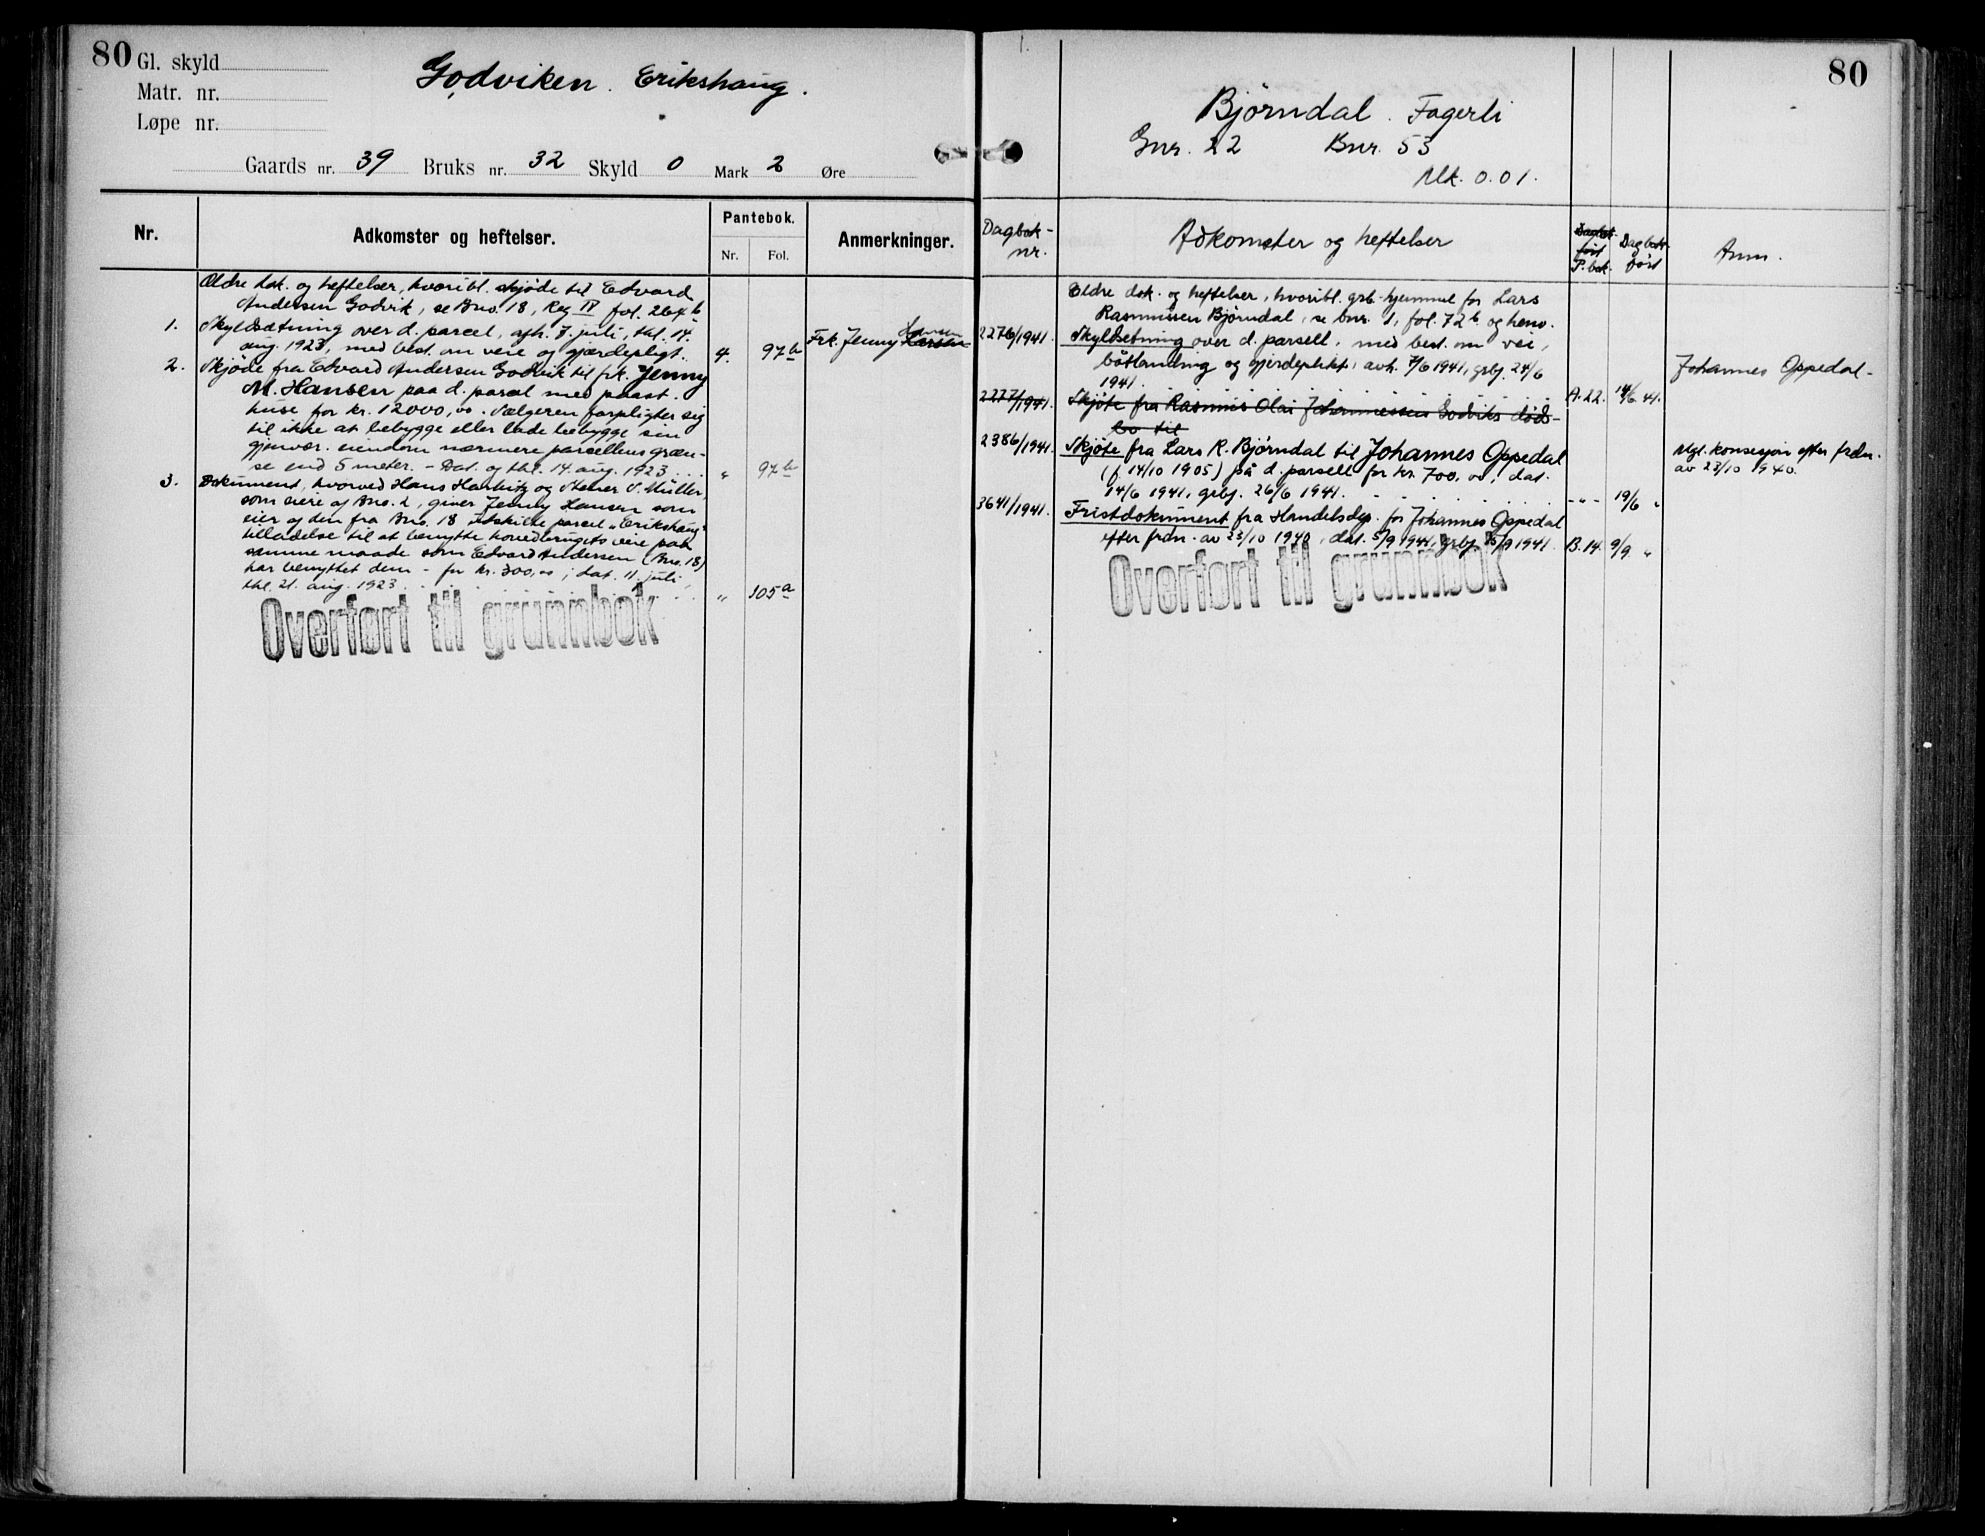 80
Gl. skyld
Matr. nr.
Løpe nr.
Godviken. Erikshaug.
Gaards nr. 39 Bruks nr. 32 Skyld 0 Mark 2 Øre
Nr.
Adkomster og heftelser.
Pantebok.
Nr. Fol.
Anmerkninger.
Ældre dok. og heftelser, hvoribl. skjøde til Edvard
Andersen Godvik, se Bno. 18, Reg IV fol. 264b
1. Skyldsætning over d. parcel, afh. 7. juli, thl. 14.
aug. 1923, med best. om veie og gjærdepligt. 4. 97b
Frk. Jenny Hansen
2. Skjøde fra Edvard Andersen Godvik til frk. Jenny
M. Hansen paa d. parcel med paast.
huse for kr. 12000,00. Sælgeren forpligter sig
til ikke at bebygge eller lade bebygge sin
gjenvær. eiendom nærmere parcellens græn-
se end 5 meter. - Dat. og thl. 14. aug. 1923 . . . " 97b
3. Dokument, hvorved Hans Harbitz og Stener S. Müller,
som eiere af Bno. 2, giver Jenny Hansen som
eier af den fra Bno. 18 utskilte parcel "Erikshaug"
tilladelse til at benytte hovedbrugets veie paa
samme maade som Edvard Andersen (Bno. 18)
har benyttet dem - for kr. 300,00; dat. 11. juli,
thl. 21. aug. 1923 . . . " 105a
Overført til grunnbok
80
Bjørndal. Fagerli
Gnr. 22 Bnr. 53
Mk. 0.01.
Dagbok-
nr.
Adkomster og heftelser
Dagbok
ført
P. bok.
Dagbok
ført
Anm.
Eldre dok. og heftelser, hvoribl. grb.hjemmel for Lars
Rasmussen Bjørndal, se bnr. 1, fol. 72b og henv.
2276/1941. Skyldsetning over d. parsell, med best. om vei,
båtlanding og gjerdeplikt, avh. 7/6 1941, grbj. 24/6
1941. A. 22. 14/6 41.
Johannes Oppedal -
2277/1941. Skjøte fra Rasmus Olai Johannessen Godviks døds-
bo til
2386/1941. Skjøte fra Lars R. Bjørndal til Johannes Oppedal
(f 14/10 1905) på d. parsell for kr. 700,00, dat.
14/6 1941, grbj. 26/6 1941. - " - 19/6 "
Mgl. konsesjon efter frdn.
av 23/10 1940.
3641/1941. Fristdokument fra Handelsdep. for Johannes Oppedal
efter frdn. av 23/10 1940, dat. 5/9 1941, grbj. 15/9 1941. B. 14. 9/9 "
Overført til grunnbok